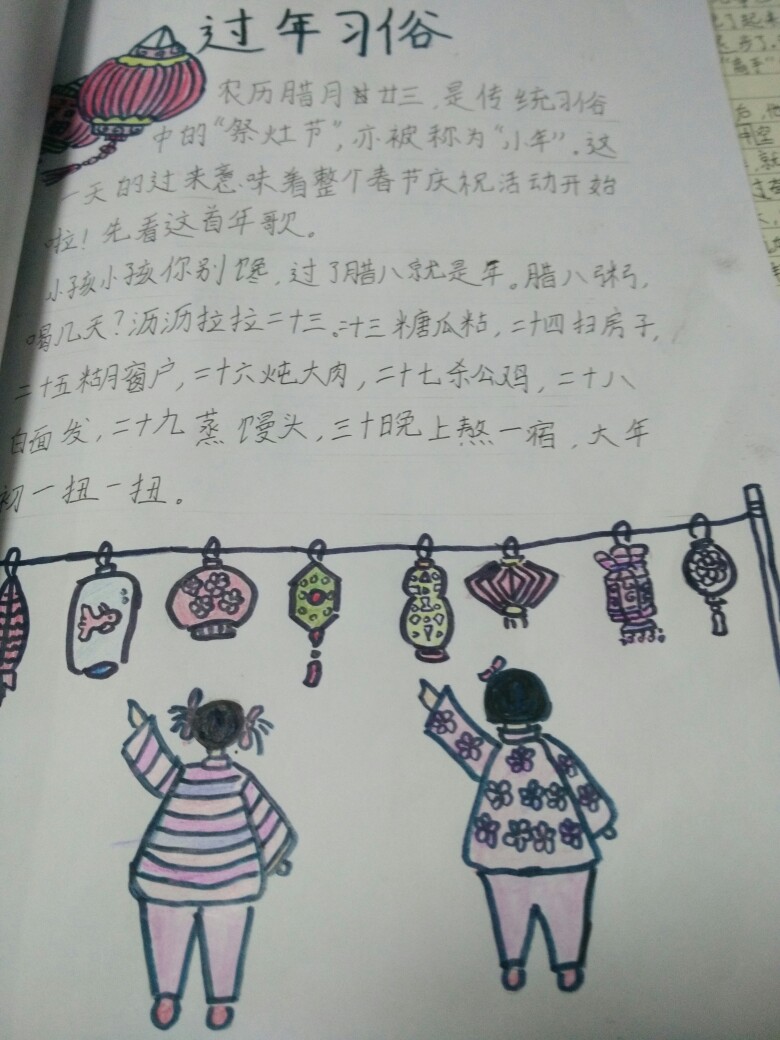 过年习俗
农历腊月廿三,是传统习俗
中的"祭灶节",亦被称为"小年"。这
一天的过来意味着整个春节庆祝活动开始
啦!先看这首年歌。
小孩小孩你别馋,过了腊八就是年。腊八粥,
喝几天?沥沥拉拉二十三。二十三糖瓜粘,二十四扫房子,
二十五糊窗户,二十六炖大肉,二十七杀公鸡,二十八
白面发,二十九蒸馒头,三十晚上熬一宿,大年
初一扭一扭。